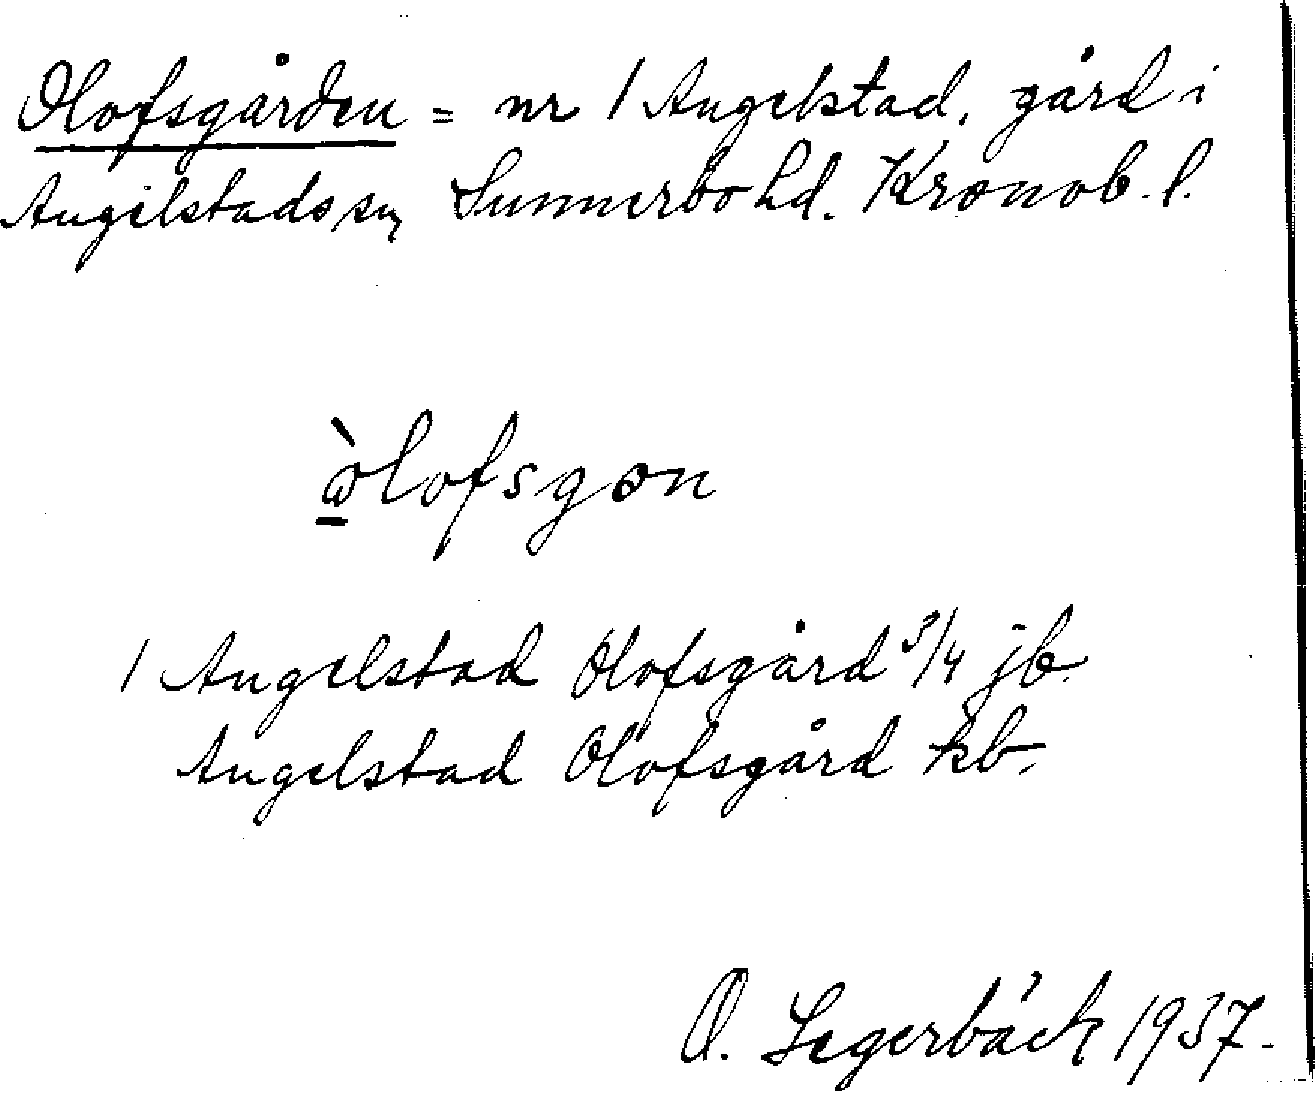 Olofsgården = nr 1 Angelstad, gård i
Angelstads sn, Sunnerbo hd. Kronob. l.
òlofsgon
1 Angelstad Olofsgård 3/4 jb.
Angelstad Olofsgård kb.
O. Segerbäck 1937.